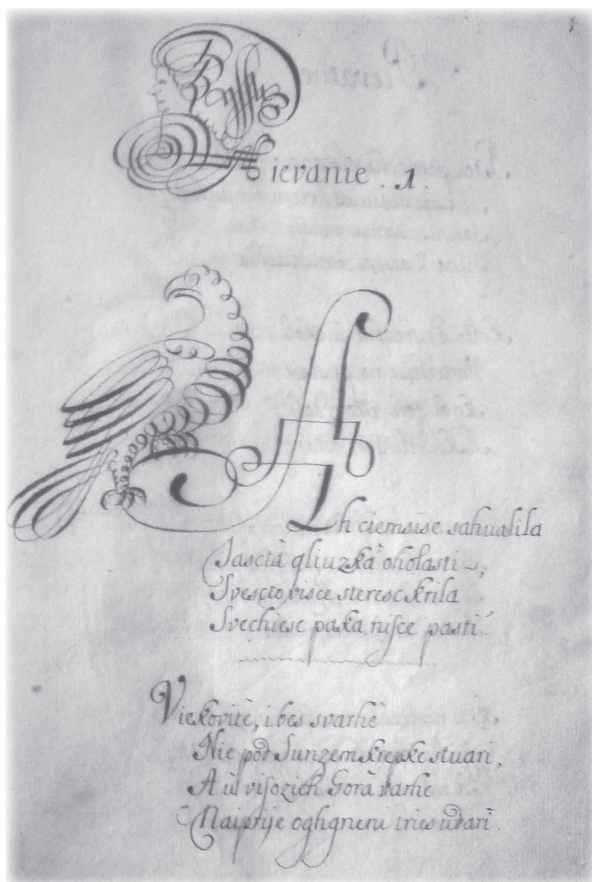 Pievanie . 1.
Ah ciemsise sahualila
Tasctà gliuzkà oholasti,
Svescto visce steresc krila
Svechiesc paka nisce pasti.
Viekovitè, i bes svarhè
Nie pod Sunzem krepke stuari,
A u visozieh Gorà varhe
Naiprije oghgneni tries udari.